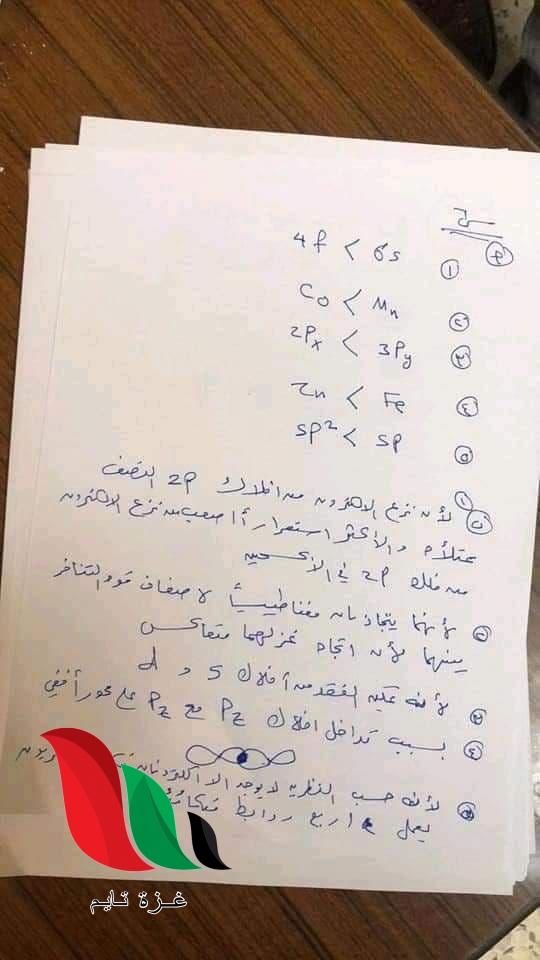 س٢
(P)
① 4f < 6s
② Co < Mn
③ 2Px < 3Py
④ Zn < Fe
⑤ sp² < sp
ب) ① لأن نزع الالكترون من افلاك 2p النصف
ممتلأه والأكثر استقرار أ اصعب من نزع الالكترون
من فلك 2p في الأكسجين
② لأنهما يتجاذبان مغناطيسياً لاضعاف قوة التنافر
بينهما لأن اتجاه غزلهما متعاكس
③ لأنه يمكن الفقد من أفلاك s و d
④ بسبب تداخل افلاك Pz مع Pz على محور أفقي
⑤ لأنه حسب النظريه لا يوجد الا الكترونان
يعمل ٤ اربع روابط
غزة تايم